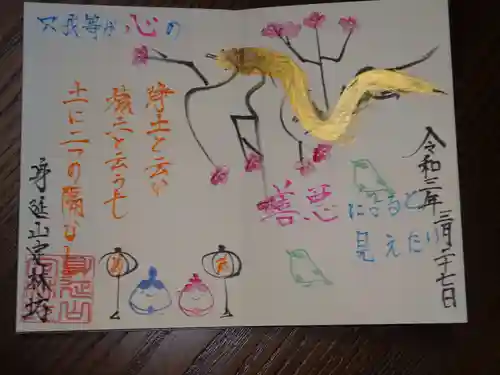 浄土と云い
穢土と云うも
土に二つの隔なし
只我等が心の
善悪
によると
見えたり
令和二年三月二十七日
身延山定林坊